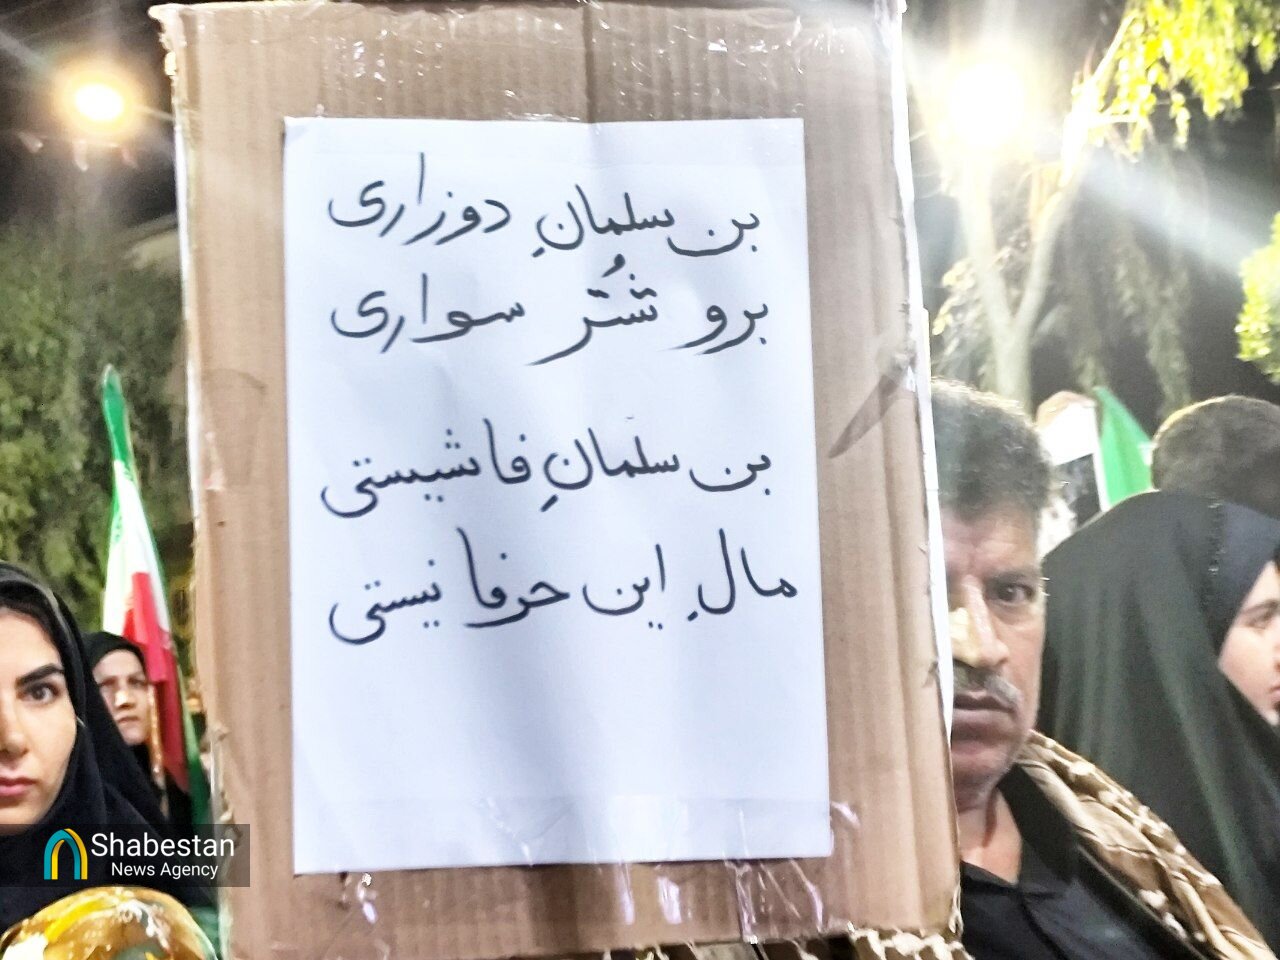 بن سلمانِ دوزاری
برو شُتر سواری
بن سلمانِ فاشیستی
مالِ این حرفا نیستی
Shabestan
News Agency